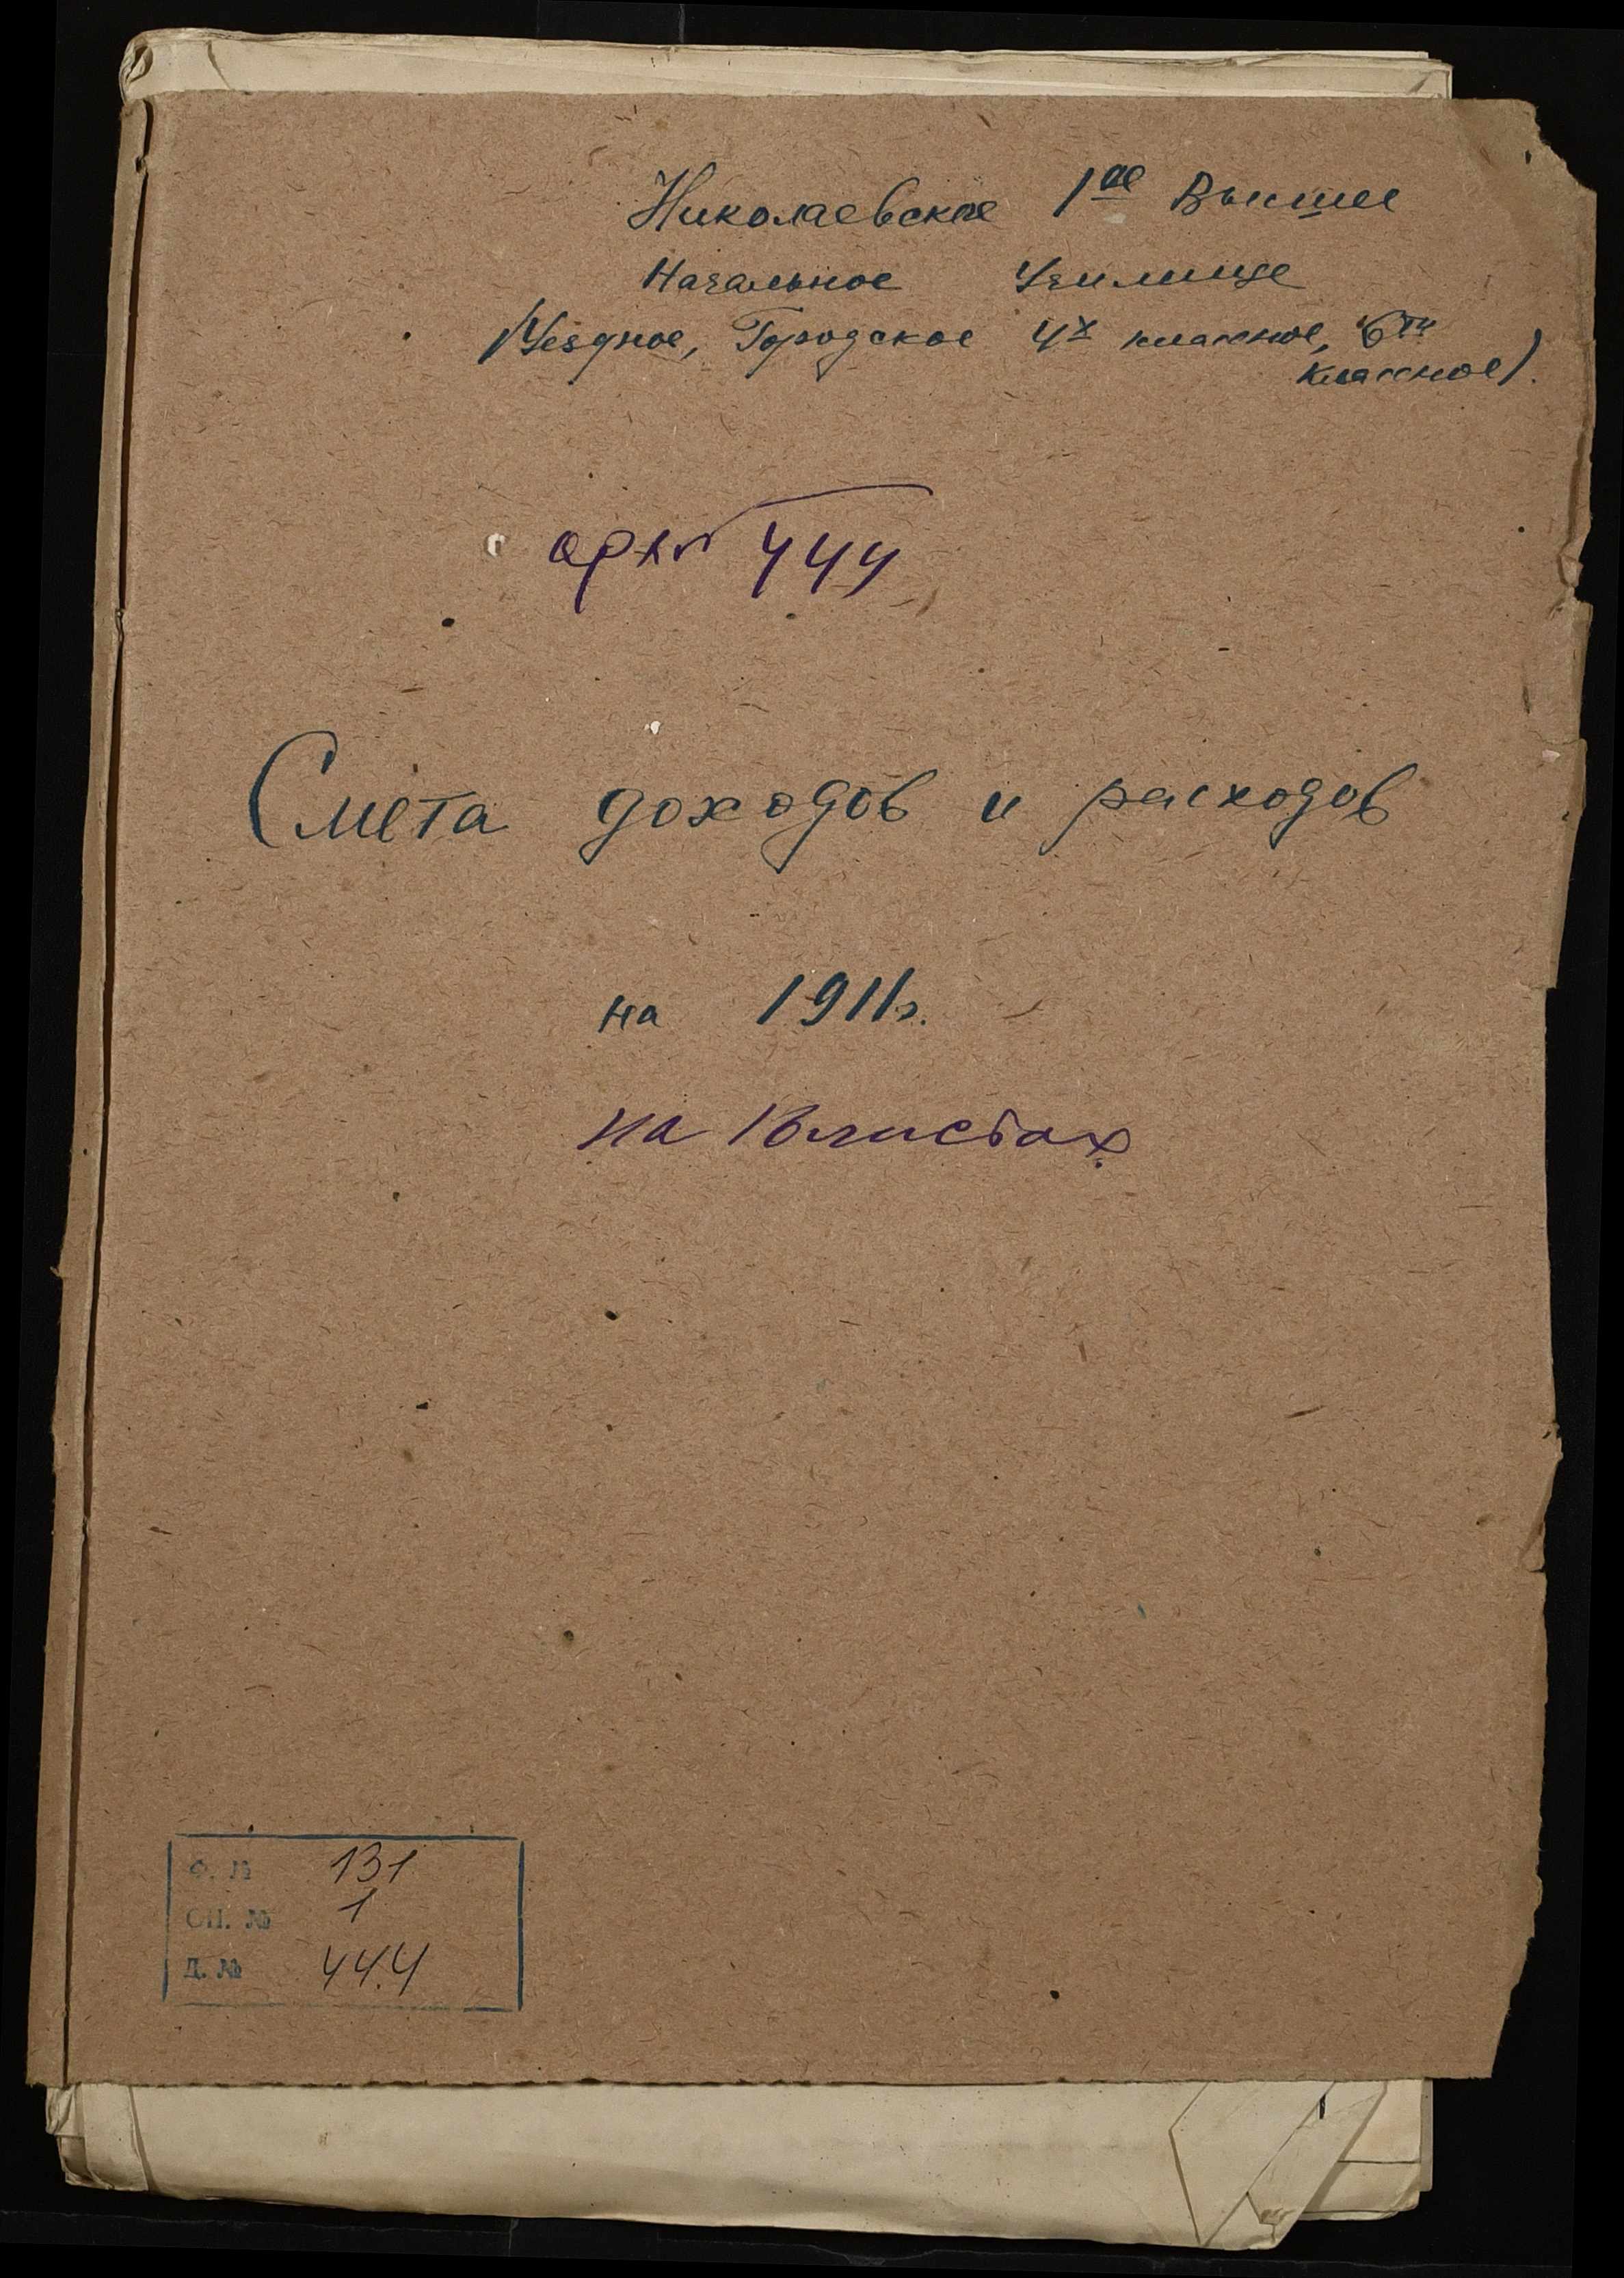 Николаевское 1ое Высшее
Начальное Училище
(Уездное, Городское 4х классное, 6ти
классное).
арх № 444
Смета доходов и расходов
на 1911г.
на листах
Ф. № 131
ОП. № 1
Д. № 444